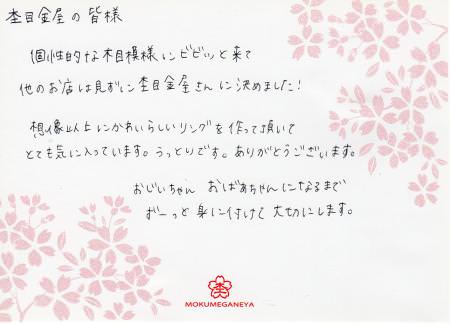 杢目金屋の皆様
個性的な木目模様にビビッと来て
他のお店は見ずに杢目金屋さんに決めました!
想像以上にかわいらしいリングを作って頂いて
とても気に入っています。うっとりです。ありがとうございます。
おじいちゃん おばあちゃんになるまで
ずーっと身に付けて大切にします。
杢
MOKUMEGANEYA